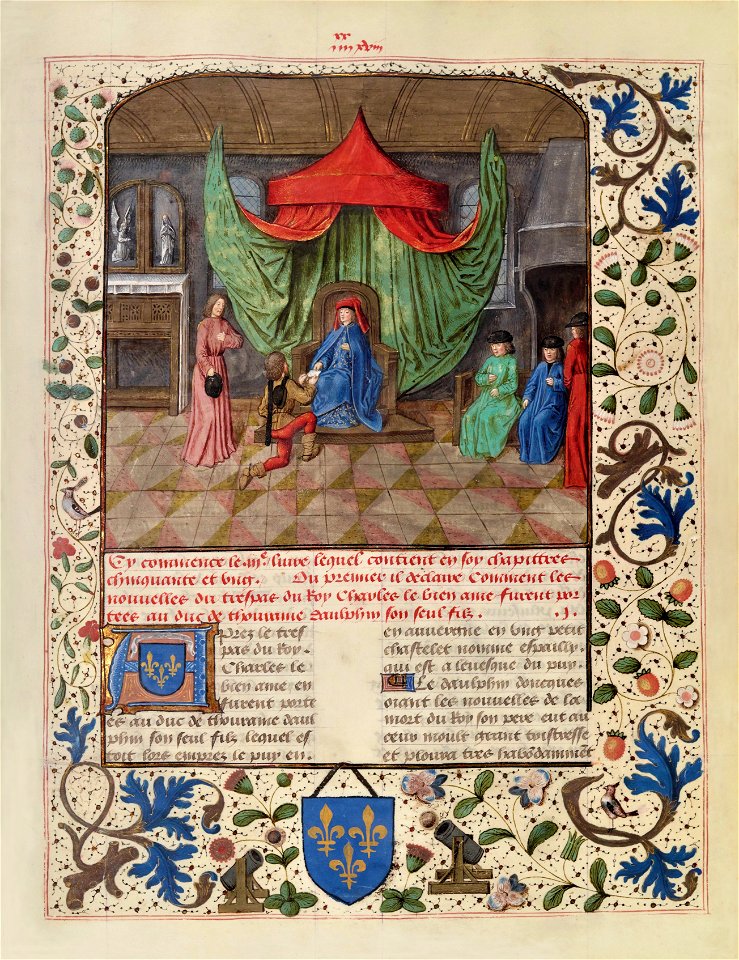 xx
iiii xviii
Cy commence le iiie livre lequel contient en soy chapittres
chinquante et ung. Du premier il declaire Comment les
nouvelles du trespas du Roy Charles le bien ame furent por
tees au duc de thouraine daulphin son seul filz. .I.
Aprez le tres
pas du Roy.
Charles le
bien ame en
furent porte
es au duc de thouraine daul
phin son seul filz lequel es
toit lors emprez le puy en.
en auvergne en ung petit
chastelet nomme espailly.
qui est a levesque du puy.
Le daulphin doncques
oiant les nouvelles de la
mort du Roy son pere eut au
ceur moult grant tristresse
et ploura tres habondamment